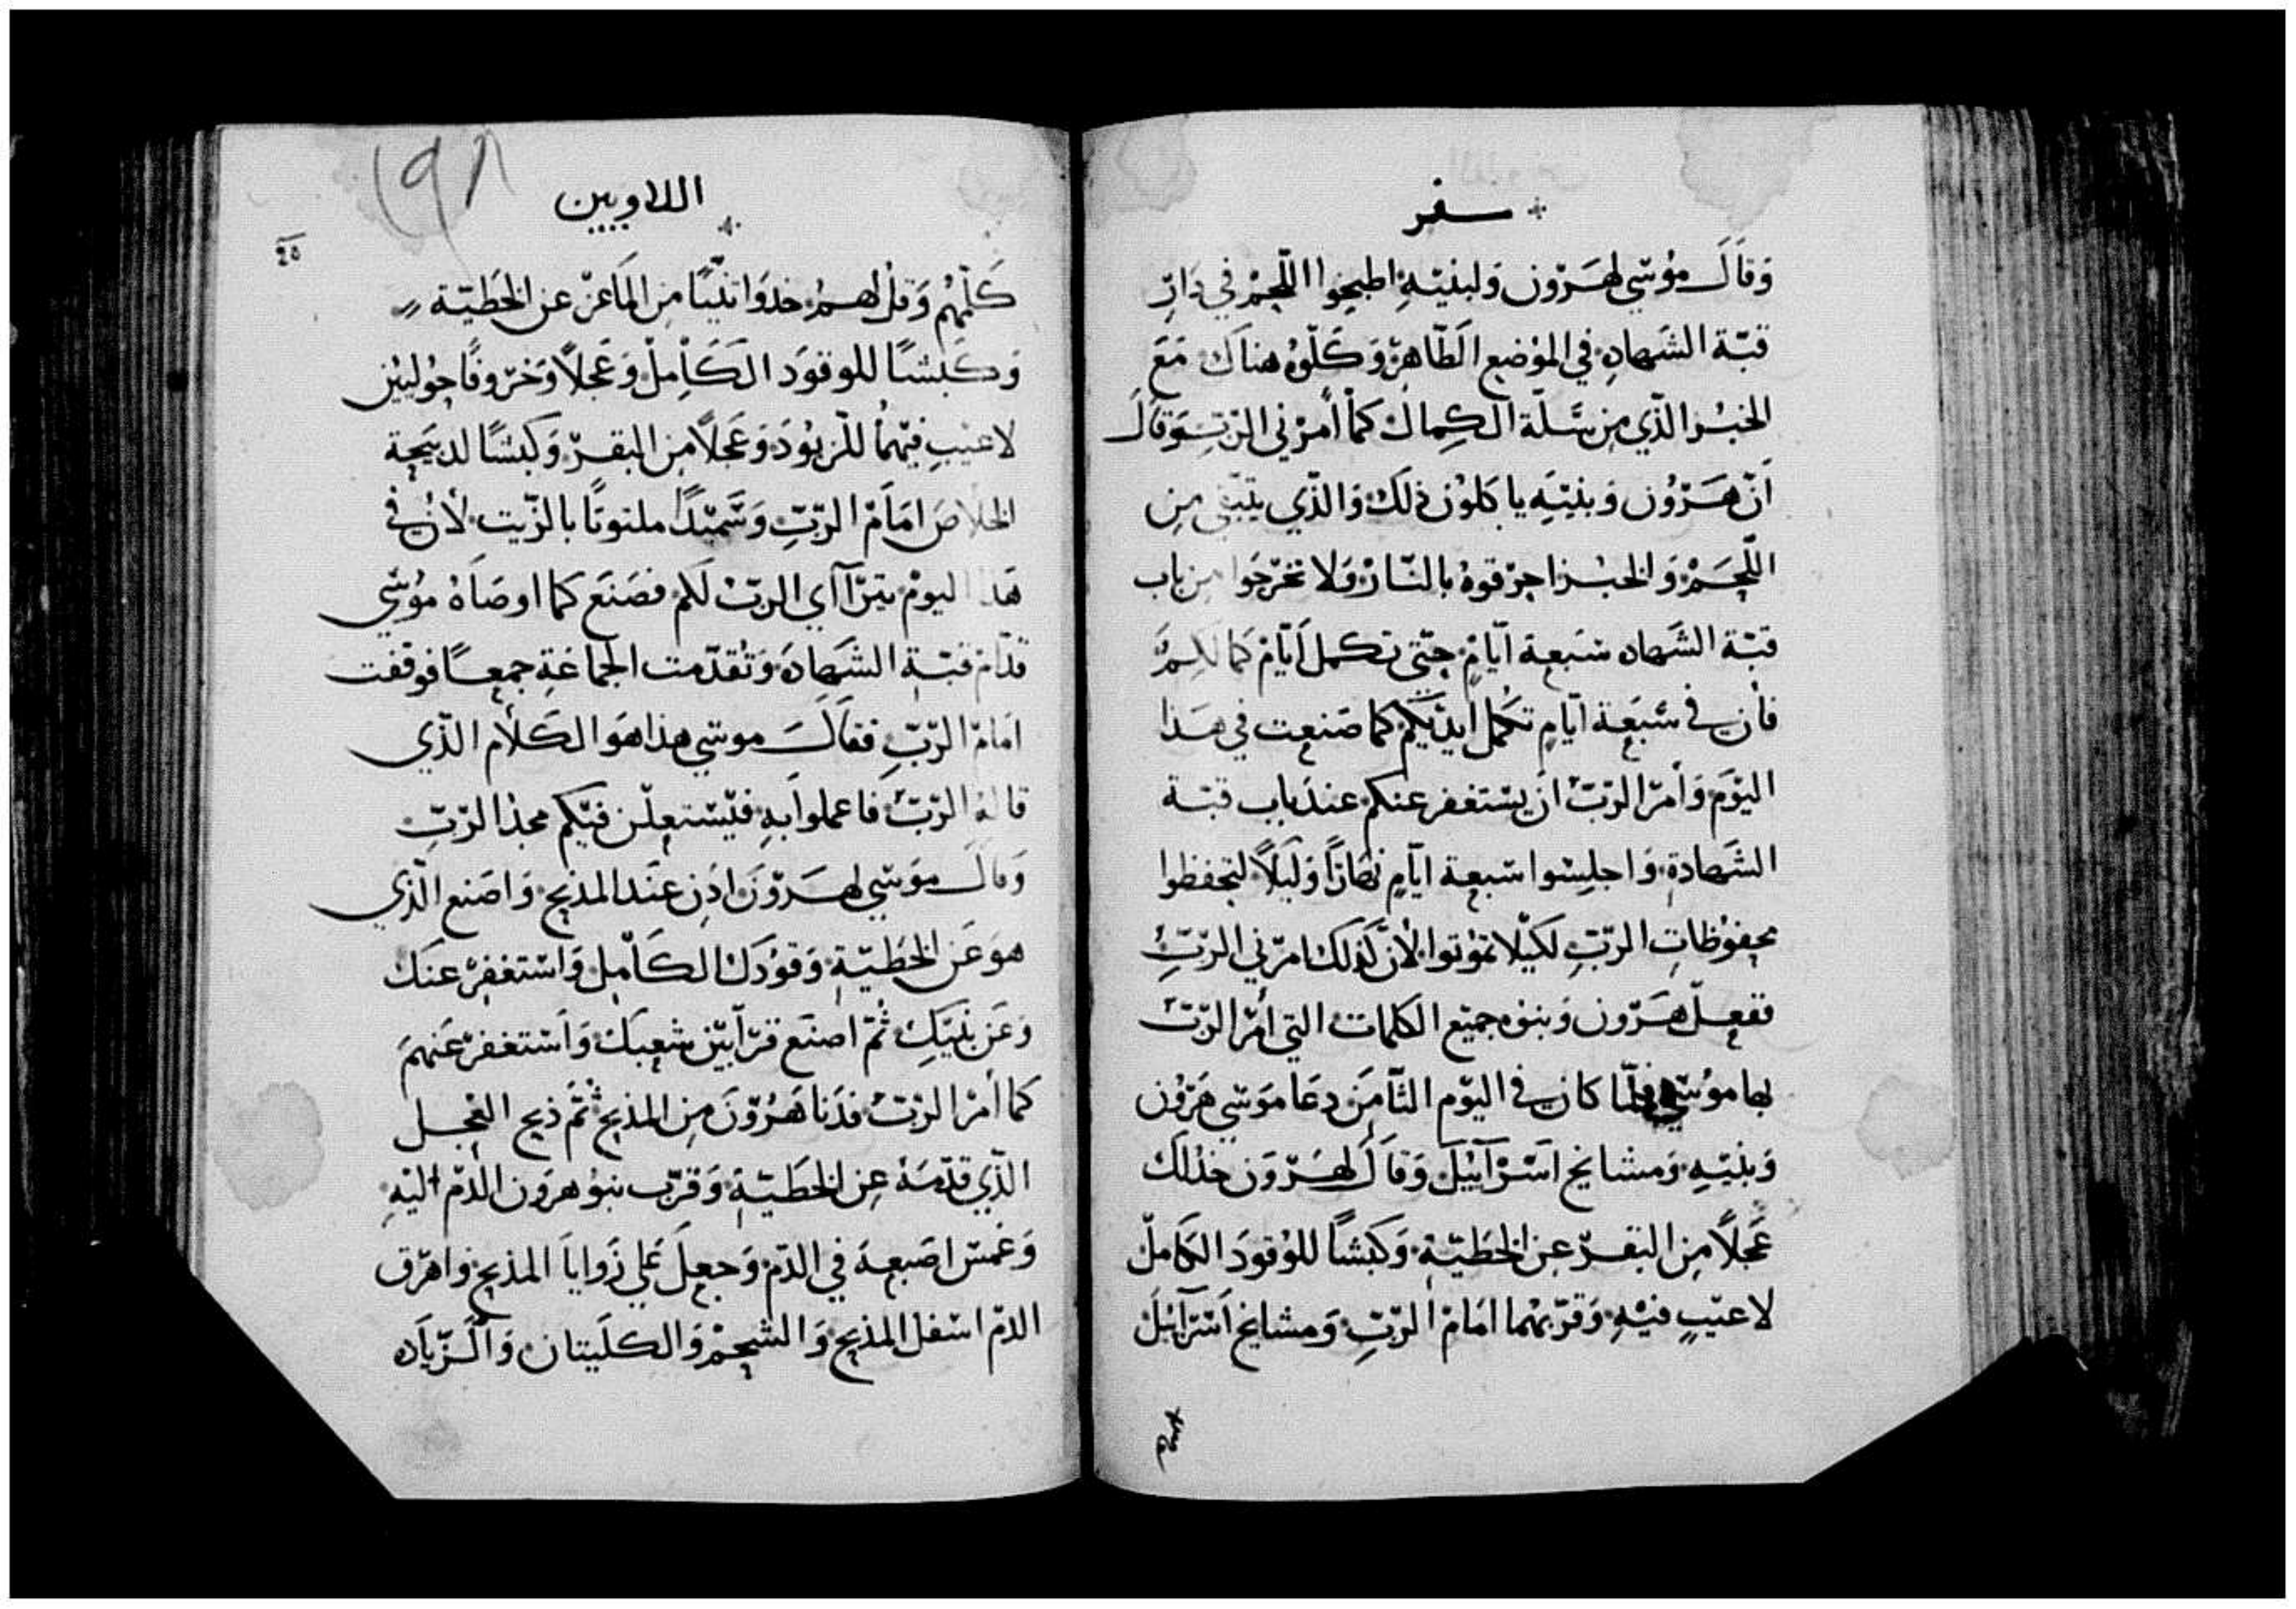 سفر
وَقَالَ مُوسَي لهَرون وَلبنيَهِ اطبخوا اللّحمْ في دَارِ
قبّة الشهادِ في الموْضع الطّاهِرْ وَكلوُهُ هناكَ مَعَ
الخبْز الذّي مِن سَّلة الكِمالْ كماْ أمرْني الرّبّ وَقَالَ
اَنّ هَرْوُن وَبنيَه ياكلوُن ذلكْ وَالذّي يتبْقي مِن
اللّحَمْ وَالخبْز احرْقوهُ بالنّارْ وَلا تخرْجَوا من باب
قبّة الشهاده سْبعة ايّامٍ حتّي تكمل اَيّامْ كمالكمُ
فأن في سّبعَة ايّامٍ تكمَل ايديَكم كما صَنعت في هَذا
اليوَمْ وَأمرّ الربّ ان يسْتغفر عنكم عندَ باب قبّة
الشهادة وَاجلِسْوا سْبعة ايّامٍ نهَارًا وَليَلًا لتحفظوا
محفوْظاتِ الرّبِّ لكيْلا تموْتوا لأنّ كذلكْ امرّني الرّبِّ
ففعلّ هَرّون وَبنوْه جميّع الكلمات التي أمرّ الربّ
بها موُسّي فلمّا كان في اليوّم الثاّمَن دعَا موَسّي هَرّون
وَبنيّهِ وَمشايخ اسْرآئيل وَقاَل لهَرّون خذْلكْ
عَجلًا مِن البقرّ عِن الخطَيّة وَكبَشًا للوُقودَ الكَاملْ
لا عيّبٍ فيْهِ وَقرّبهْما امَامْ الرّبِّ وَمشايخ اسْرآئيل
اللاويين
٩٥
١٩٨
كلّهُم وَقلْ لهمُ خدوَا تيْسًا مِن المَاعزّ عن الخَطيّة
وَكبشًا للوقوَد الكاَمِلْ وَعَجلًا وَخرْوفًا حوُليْين
لا عيْبِ فيّهماُ للزبوُدَ وَعَجلًا مِن البقرّ وَكبْشًا لدبيَحِة
الخلاصَ امَامْ الرّبّ وَسَّميْدًا ملتوتًا بالزّيت لأن في
هَذا اليومْ يترّآاي الربّ لكم فصَنَع كما اوصَاهُ موُسّي
قدّام قبّة الشهادَه وَتقدّمت الجماعَة جمعًا فوقفت
امَامْ الرّبِّ ففاَلَ موسْي هذا هَو الكَلاْم الذّي
قاله الربّ فاعملوا بهِ فيسْتعلّن فيْكم مجدْ الرّبِّ
وَقال موَسّي لهَرْوَن اُدن عنَد المذبح وَاصَنع الّذي
هوَ عَن الخَطيّة وَقوُدَك الكاَمل وَاسْتغفِرْ عنَك
وَعَن بنيَكِ ثمّ اصنَع قرّآبيْن شعِبكْ وَاَسْتغفرْ عَنهمَ
كما أمرْ الربّ فدَنا هَرُوّنَ مِن المذبح ثمّ ذبح العْجل
الذّي قدّمَهْ عِن الخَطيّة وَقرّب بنوُ هروَن الَدّمْ اليْهِ
وَغمسّ اصَبعهَ في الدّمْ وَجعلَ علَي زَوايَا المذبح واهرّق
الدمّ اسْفل المذبح وَالشحمْ وَالكلَيتان وَالَزّيَاده